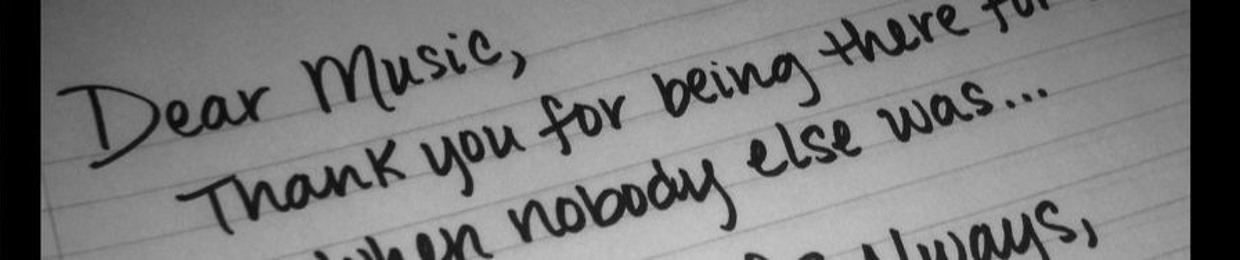 Dear Music,
Thank you for being there for
when nobody else was...
Always,